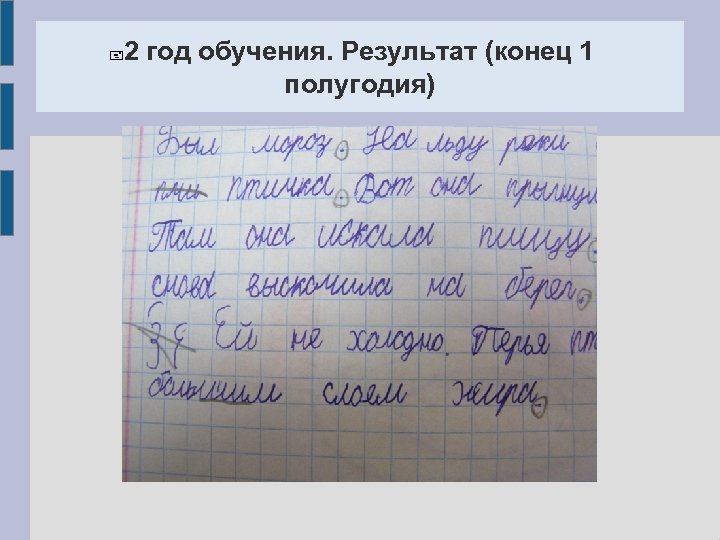 2 год обучения. Результат (конец 1
полугодия)
Был мороз. На льду реки
птичка. Вот она прыгнул
Там она искала пищу.
снова выскочила на берег.
Ей не холодно. Перья пт
большим слоем жира.